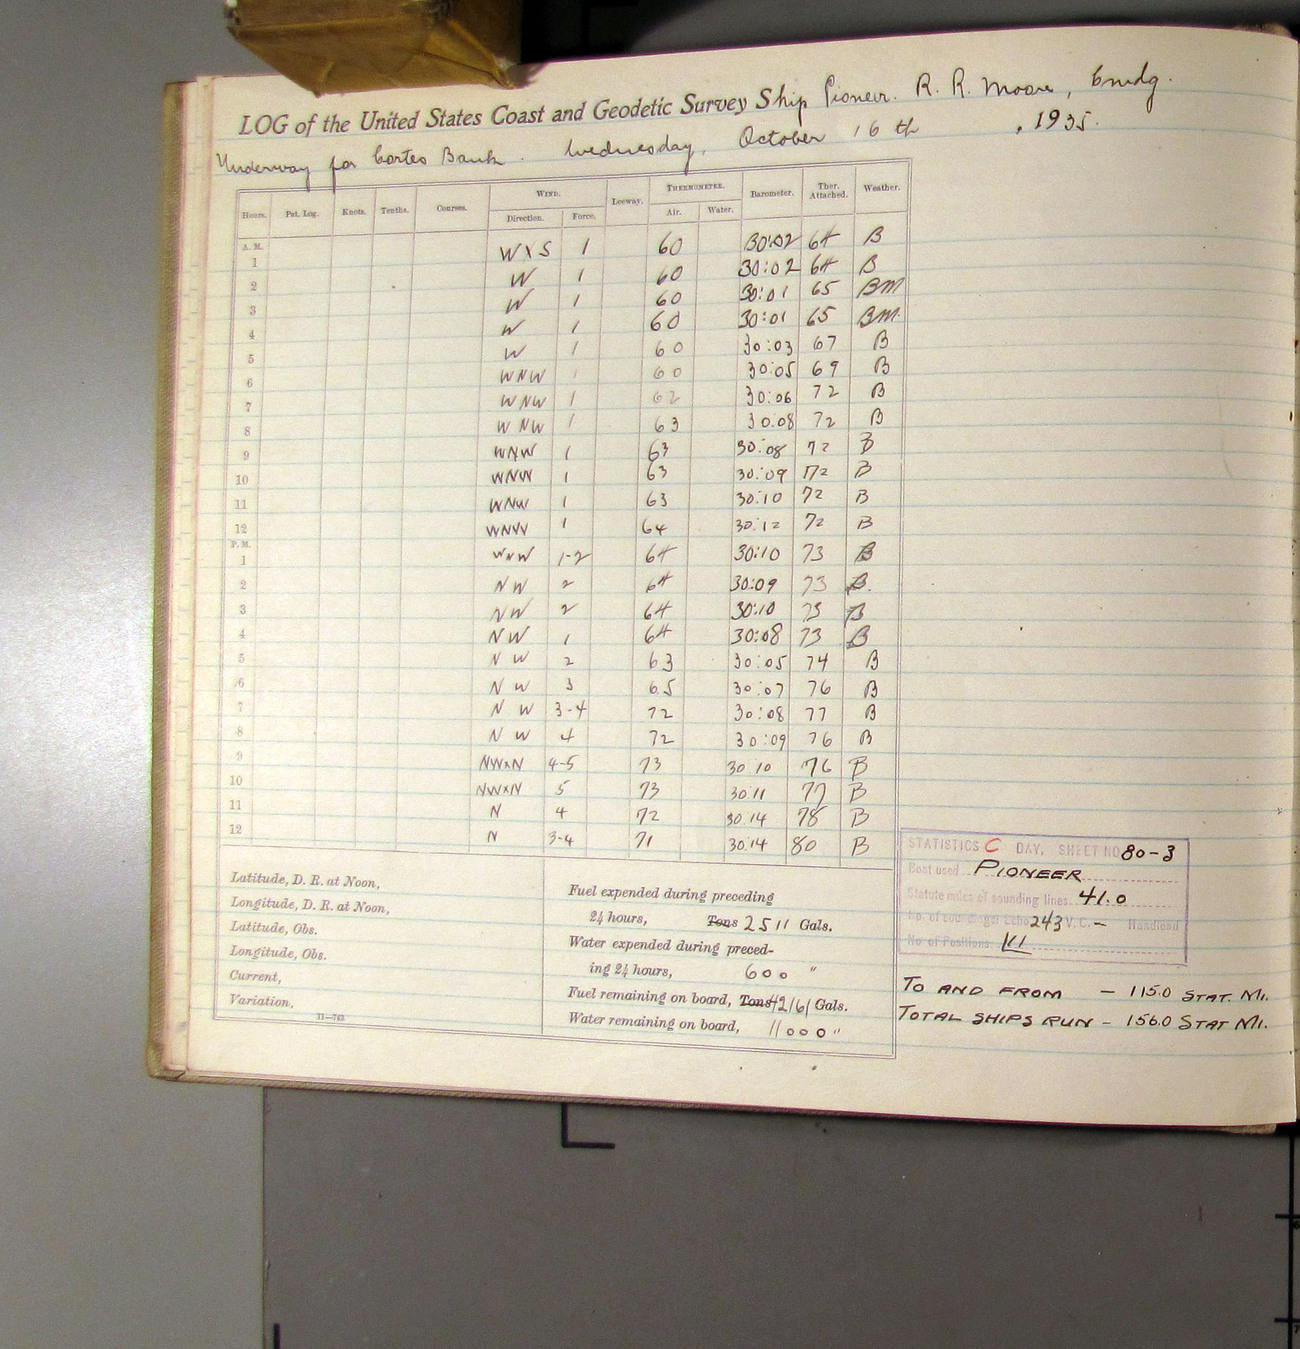 LOG of the United States Coast and Geodetic Survey Ship Pioneer. R. R. Moore, Cmdg.
Underway for Cortes Bank. Wednesday, October 16 th, 1935.
Hours. Pat. Log. Knots. Tenths. Courses. WIND. Leeway. THERMOMETER. Barometer. Ther. Attached. Weather.
Direction. Force. Air. Water.
A. M.
1 WXS 1 60 30:02 64 B
2 W 1 60 30:02 64 B
3 W 1 60 30:01 65 BM
4 W 1 60 30:01 65 BM.
5 W 1 60 30:03 67 B
6 WNW 1 60 30:05 69 B
7 WNW 1 62 30:06 72 B
8 WNW 1 63 30.08 72 B
9 WNW 1 63 30:08 72 B
10 WNW 1 63 30:09 72 B
11 WNW 1 63 30:10 72 B
12 WNW 1 64 30:12 72 B
P. M.
1 WNW 1-2 64 30:10 73 B
2 NW 2 64 30:09 73 B.
3 NW 2 64 30:10 73 B
4 NW 1 64 30:08 73 B
5 NW 2 63 30:05 74 B
6 NW 3 65 30:07 76 B
7 NW 3-4 72 30:08 77 B
8 NW 4 72 30:09 76 B
9 NWxN 4-5 73 30 10 76 B
10 NWxN 5 73 30 11 77 B
11 N 4 72 30.14 78 B
12 N 3-4 71 30.14 80 B
Latitude, D. R. at Noon,
Longitude, D. R. at Noon,
Latitude, Obs.
Longitude, Obs.
Current,
Variation,
11—763
Fuel expended during preceding
24 hours, Tons 2511 Gals.
Water expended during preced-
ing 24 hours, 600 "
Fuel remaining on board, Tons 42161 Gals.
Water remaining on board, 11000 "
STATISTICS C DAY, SHEET NO 80-3
Boat used PIONEER
Statute miles of sounding lines 41.0
No. of soundings: Echo 243 V.C. – Handlead
No of Positions
TO AND FROM — 115.0 STAT. MI.
TOTAL SHIPS RUN — 156.0 STAT MI.